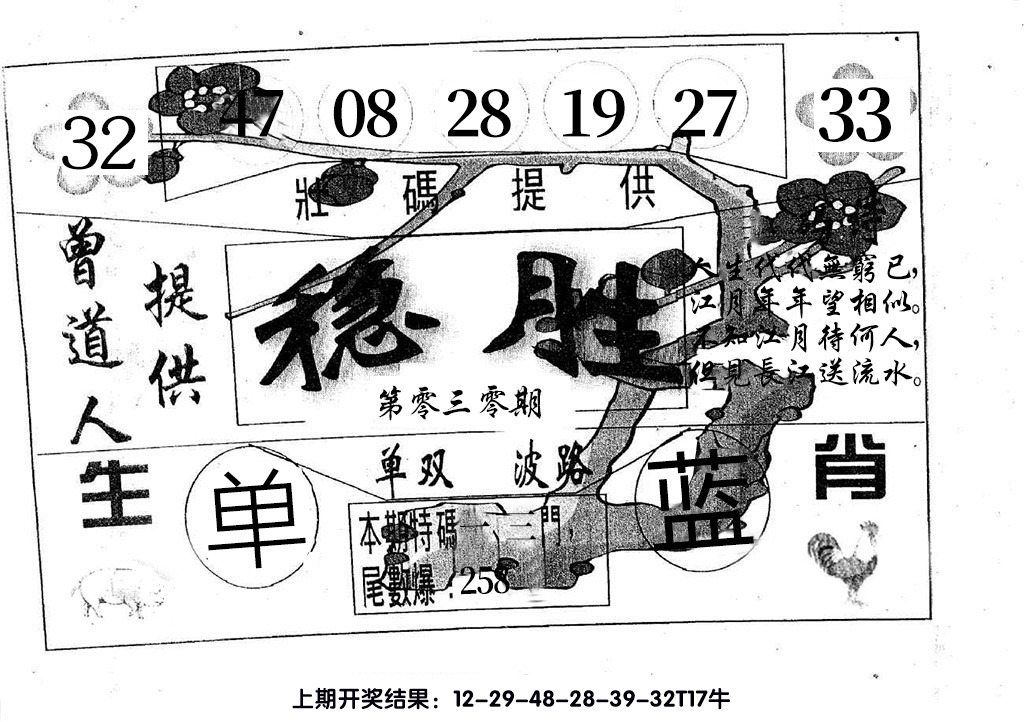 32 47 08 28 19 27 33
壯碼提供
曾道人
提供
稳胜
第零三零期
人生代代無窮已，
江月年年望相似。
不知江月待何人，
但見長江送流水。
单双 波路
生肖
单
蓝
本期特碼一、三門，
尾數爆：258
上期开奖结果：12-29-48-28-39-32T17牛